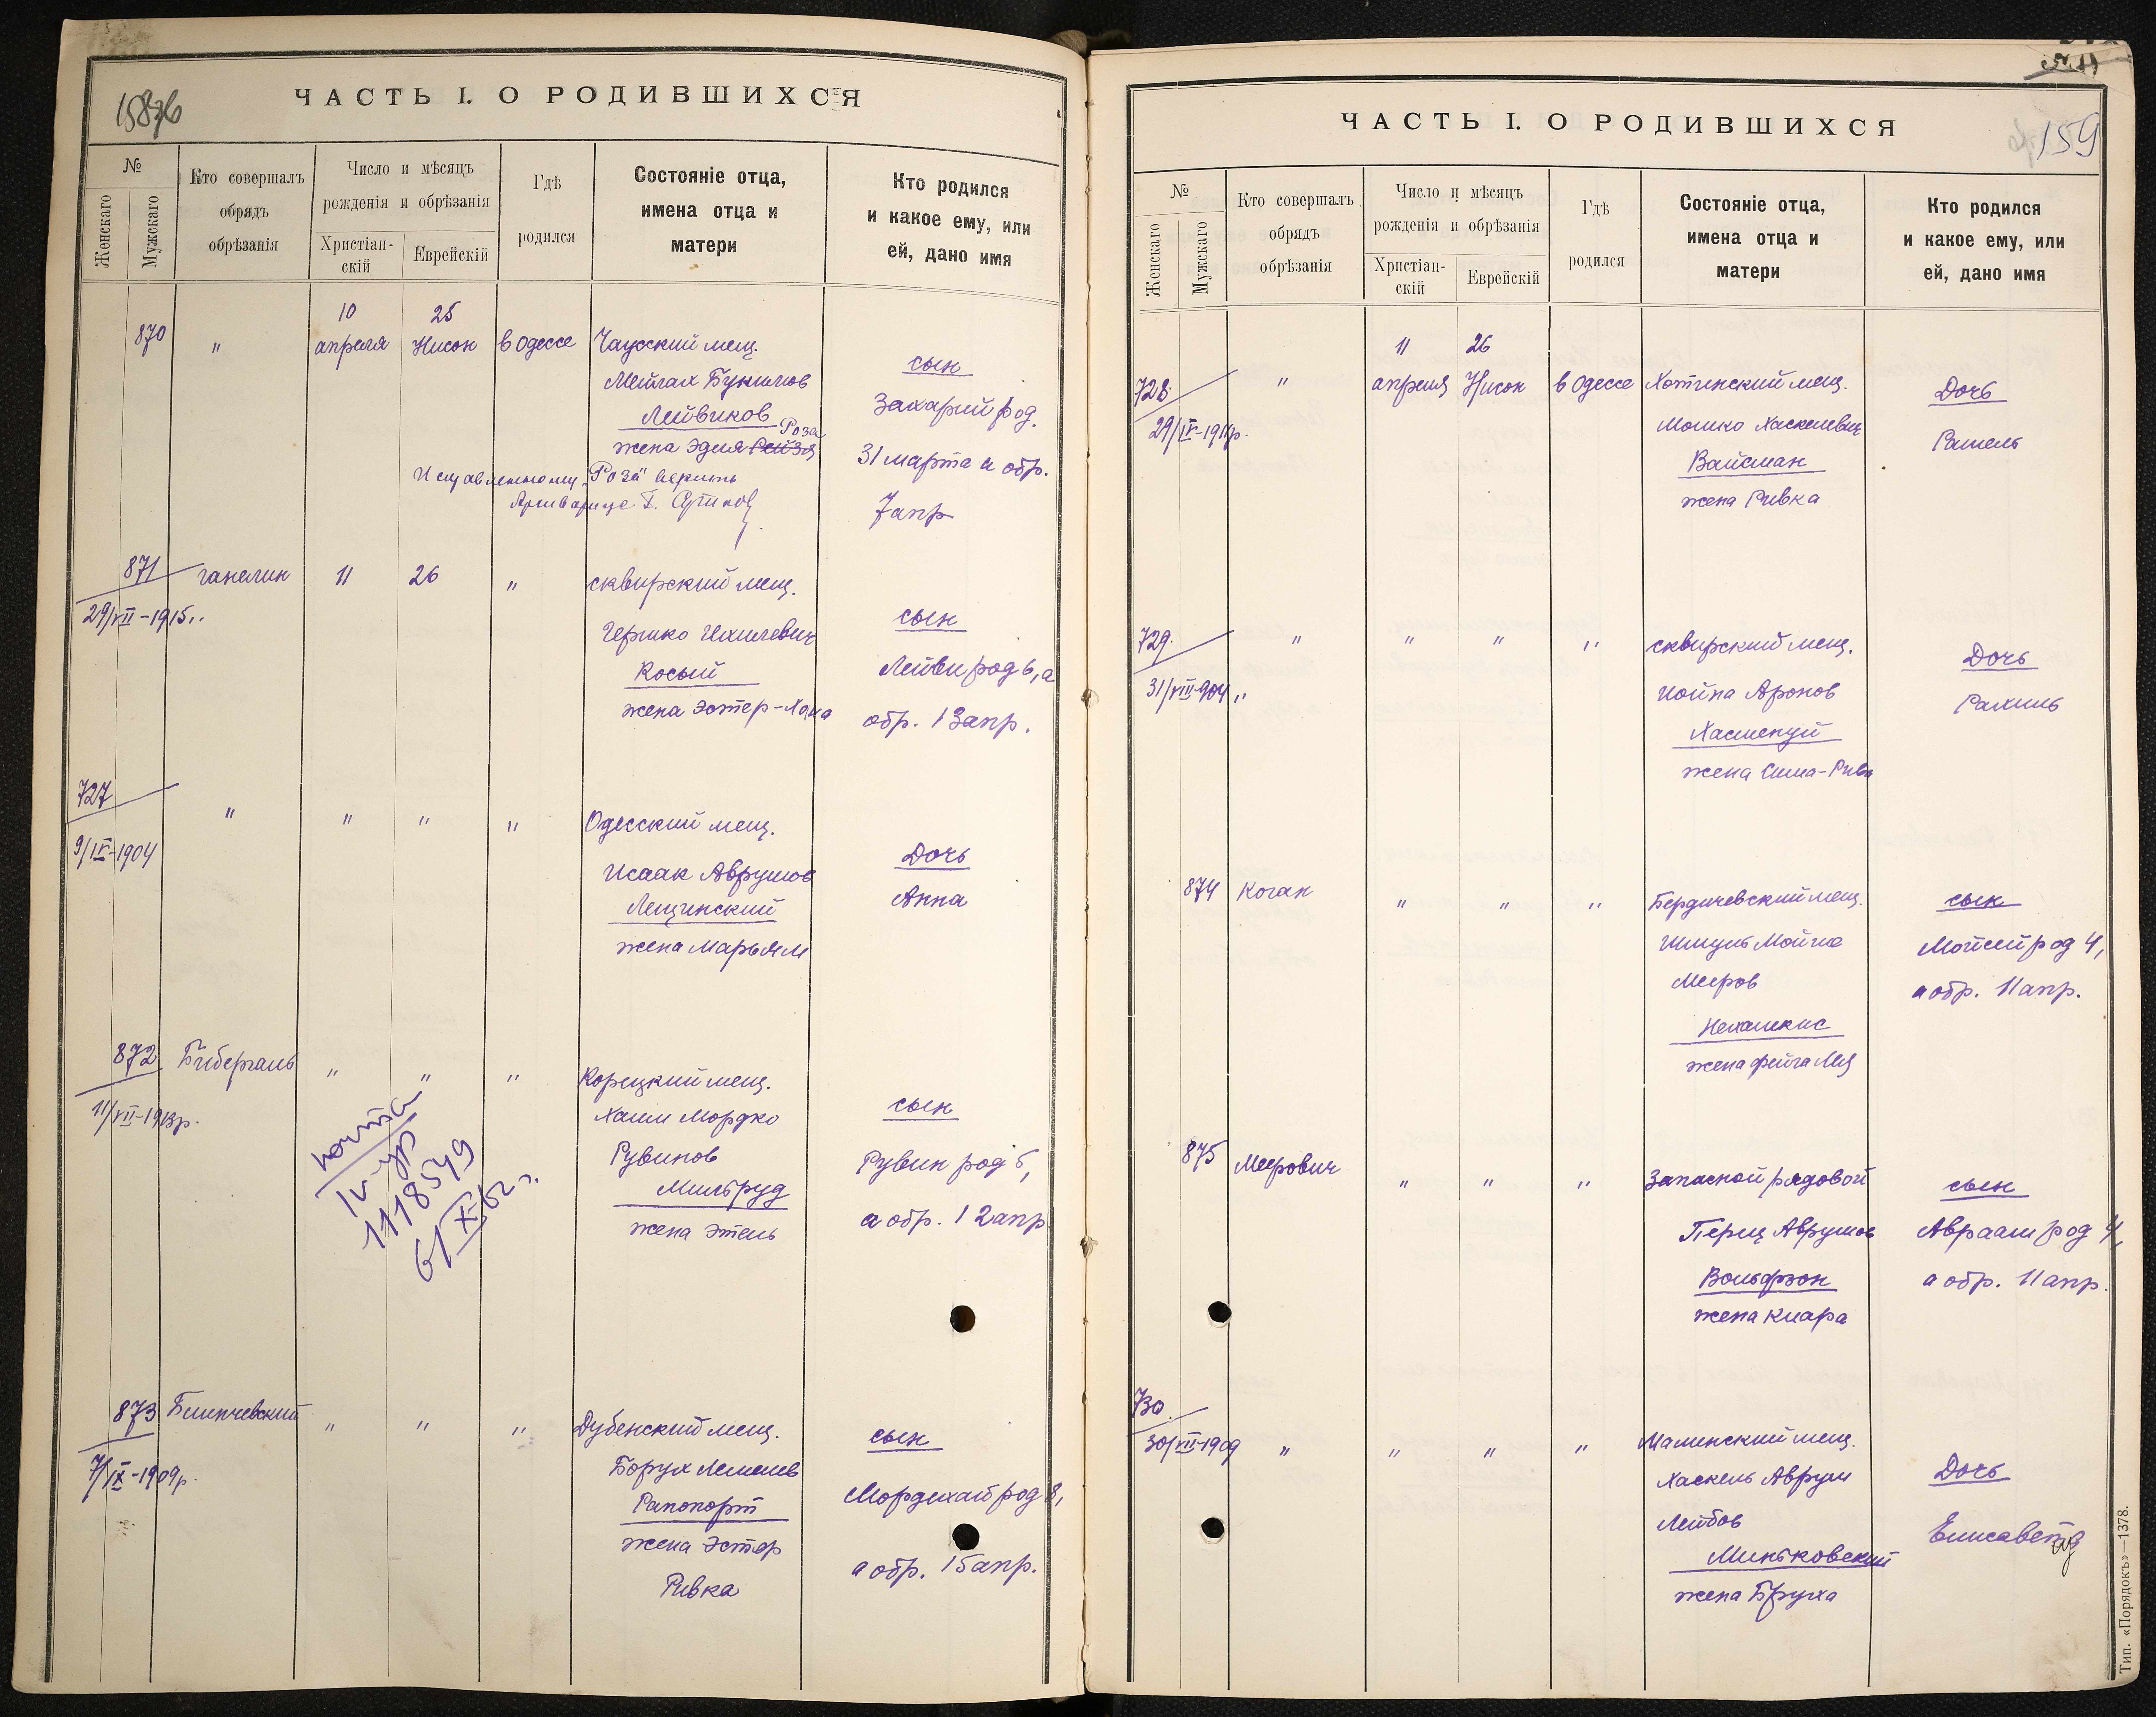 158об
ЧАСТЬ I. О РОДИВШИХСЯ
№
Женскаго
Мужскаго
Кто совершалъ
обрядъ
обрѣзанія
Число и мѣсяцъ
рожденія и обрѣзанія
Христіан-
скій
Еврейскій
Гдѣ
родился
Состояніе отца,
имена отца и
матери
Кто родился
и какое ему, или
ей, дано имя
870 " 10 апреля 25 Нисон в Одессе Чаусский мещ.
Мейлах
Лейвиков
жена Эдия Рейзя Роза
Исправленному „Роза" верить
Архивариус
сын
Захарий род.
31 марта а обр.
7 апр
871 Ганелин 11 26 " сквирский мещ.
29/VII-1915 г.
Гершко Ихилевич
Косый
жена Эстер-Хана
сын
Лейви род 6, а
обр. 13 апр.
727 " " " " Одесский мещ.
9/IV-1904
Исаак Аврумов
Лещинский
жена Марьям
Дочь
Анна
872 Бибергаль " " " Корецкий мещ.
11/VII-1913 р.
Хаим Мордко
Рувинов
Мильруд
жена Этель
сын
Рувин род 5,
а обр. 12 апр
почта
1118549
6/X-62 г.
873 " " " Дубенский мещ.
7/IX-1909 р.
Борух
Рапопорт
жена Эстер
Ривка
сын
Мордехай род 8,
а обр. 15 апр.
159
ЧАСТЬ I. О РОДИВШИХСЯ
№
Женскаго
Мужскаго
Кто совершалъ
обрядъ
обрѣзанія
Число и мѣсяцъ
рожденія и обрѣзанія
Христіан-
скій
Еврейскій
Гдѣ
родился
Состояніе отца,
имена отца и
матери
Кто родился
и какое ему, или
ей, дано имя
728 " 11 апреля 26 Нисон в Одессе Хотинский мещ.
Мошко Хаскелевич
Вайсман
жена Ривка
Дочь
Рашель
729 " " " " сквирский мещ.
31/VIII-904 г.
Иойна Аронов
жена Сима-Ривка
Дочь
Рахиль
874 Коган " " " Бердичевский мещ.
Шмуль Мойше
Мееров
Нехамкис
жена Фейга Лея
сын
Мойсей род 4,
а обр. 11 апр.
875 Меерович " " " Запасной рядовой
Перец Аврумов
Вольфзон
жена Клара
сын
Авраам род 4,
а обр. 11 апр.
730 " " " " Малинский мещ.
30/VII-1909
Хаскель Аврум
Лейбов
Миньковский
жена Бруха
Дочь
Елисавета
Тип. «Порядокъ»—1378.